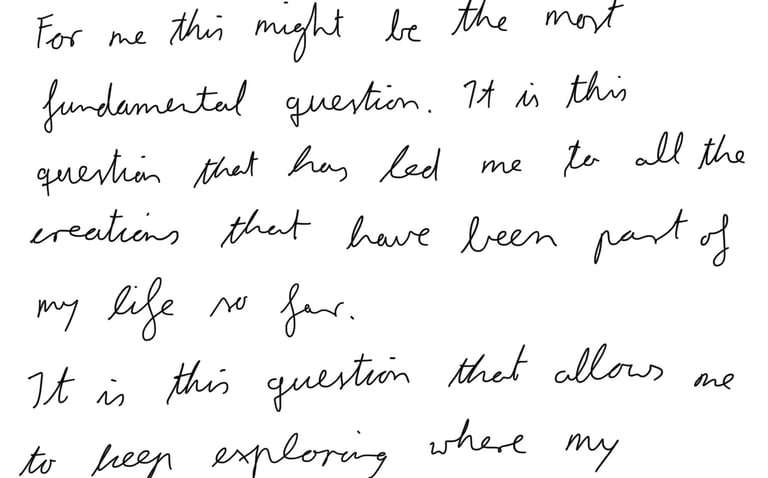 For me this might be the most
fundamental question. It is this
question that has led me to all the
creations that have been part of
my life so far.
It is this question that allows me
to keep exploring where my